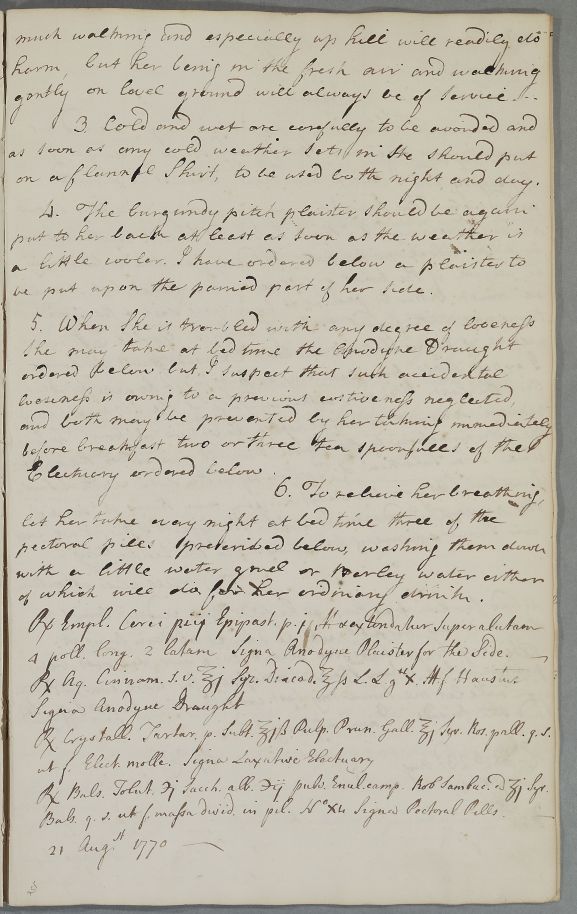 much walking and especially up hill will readily do
harm, but her being in the fresh air and walking
gently on level ground will always be of Service. --
3. Cold and wet are carefully to be avoided and
as soon as any cold weather sets in She should put
on a flannel Shirt, to be used both night and day.
4. The burgundy pitch plaister should be again
put to her back at least as soon as the weather is
a little cooler. I have ordered below a plaister to
be put upon the pained part of her side.
5. When She is troubled with any degree of looseness
She may take at bed time the Anodyne Draught
ordered below but I suspect that such accidental
looseness is owing to a previous costiveness neglected,
and both may be prevented by her taking immediately
before breakfast two or three tea spoonfulls of the
Electuary ordered below.
6. To relieve her breathing,
let her take every night at bed time three of the
pectoral pills prescribed below, washing them down
with a little water gruel or Barley water either
of which will do for her ordinary drink.
℞ Empl. Cerei Epispast. p. extendatur super alutam
4 poll. long. 2 latam Signa Anodyne Plaister for the Side.
℞ Aq. Cinnam. s.v. ℥j Syr. Diacod. ℥ss L. L. gtt X. M f Haustus
Signa Anodyne Draught
℞ Crystall. Tartar. p. Subt. ℥jß Pulp. Prun. Gall. ℥j Syr. Ros. pall. q. s.
ut f. Elect. molle. Signa Laxative Electuary
℞ Bals. Tolut. ℈j Sacch. alb. ℈ij pulv. Enul. camp. Rob Sambuc. a ʒj Syr.
Bals. q. s. ut f. massa divid. in pil. No Signa Pectoral Pills.
21 Augst 1770